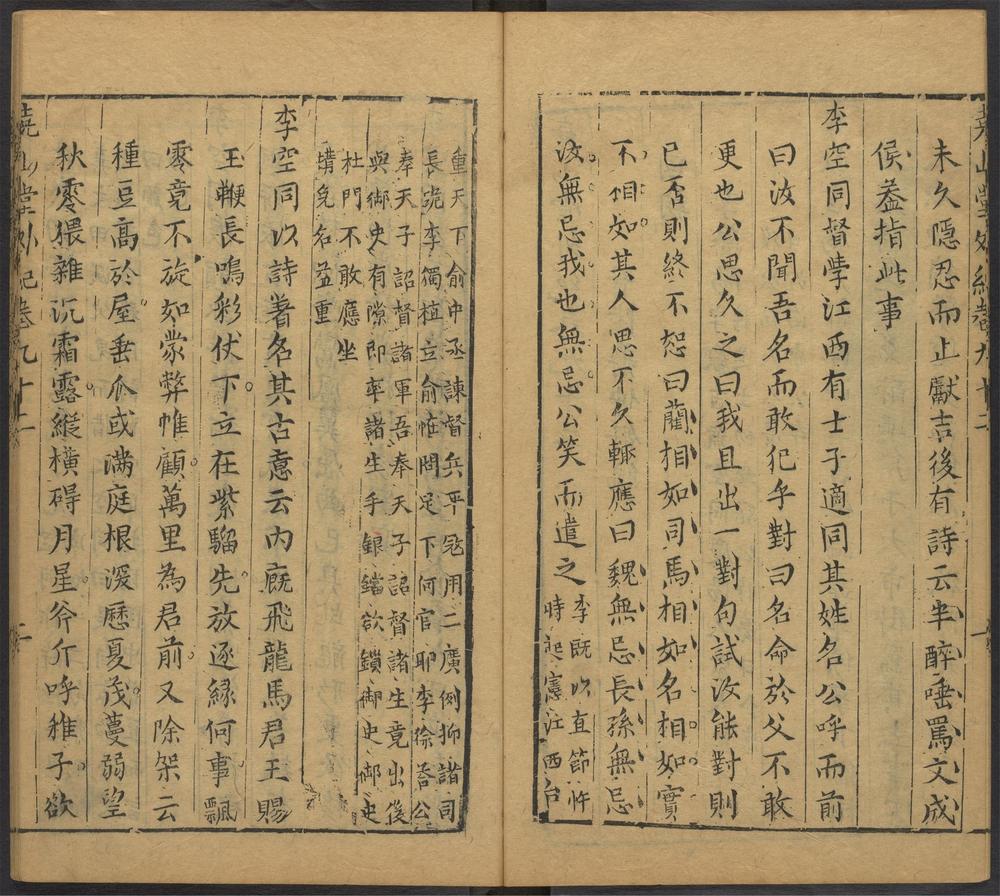 堯山堂外紀卷九十二 一
未久隱忍而止獻吉後有詩云半醉唾罵文成
侯葢指此事
李空同督學江西有士子適同其姓名公呼而前
曰汝不聞吾名而敢犯乎對曰名命於父不敢
更也公思久之曰我且出一對句試汝能對則
已否則終不恕曰藺相如司馬相如名相如實
不相如其人思不久輒應曰魏無忌長孫無忌
汝無忌我也無忌公笑而遣之
李既以直節忤
時起憲江西台
重天下俞中丞諫督兵平寇用二廣例抑諸司
長跪李獨植立俞恠問足下何官耶李徐荅公
奉天子詔督諸軍吾奉天子詔督諸生竟出後
與御史有隙即率諸生手鋃鐺欲鎖御史御史
杜門不敢應坐
搆免名益重
李空同以詩著名其古意云内廐飛龍馬君王賜
玉鞭長鳴彩伏下立在紫騮先放逐緣何事飄
零竟不旋如蒙弊帷顧萬里為君前又除架云
種豆高於屋垂瓜或滿庭根深歷夏茂蔓弱望
秋零猥雜沉霜露縱横碍月星斧斤呼稚子欲
堯山堂外紀卷九十二 二